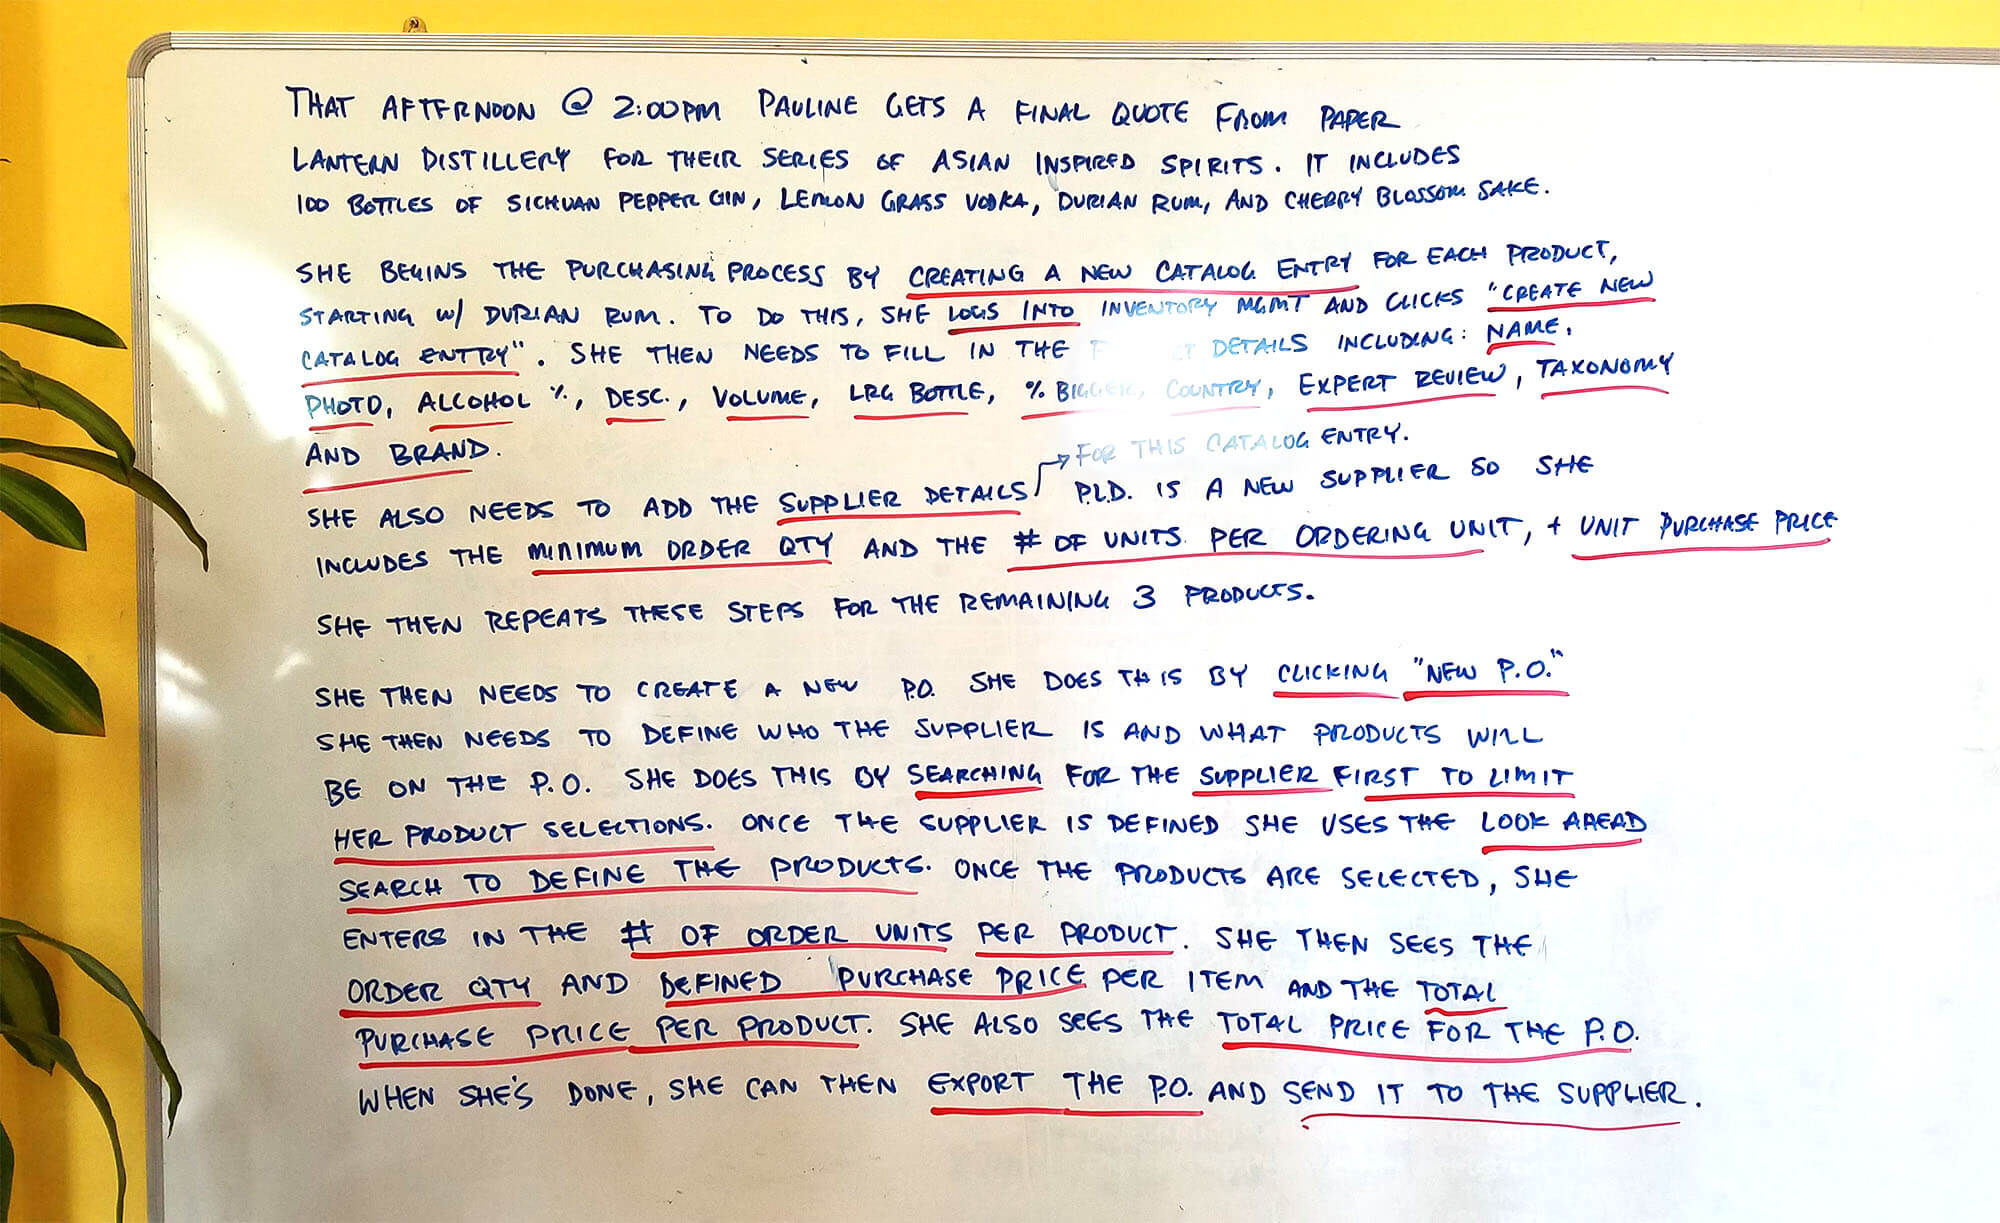 THAT AFTERNOON @ 2:00PM PAULINE GETS A FINAL QUOTE FROM PAPER
LANTERN DISTILLERY FOR THEIR SERIES OF ASIAN INSPIRED SPIRITS. IT INCLUDES
100 BOTTLES OF SICHUAN PEPPER GIN, LEMON GRASS VODKA, DURIAN RUM, AND CHERRY BLOSSOM SAKE.
SHE BEGINS THE PURCHASING PROCESS BY CREATING A NEW CATALOG ENTRY FOR EACH PRODUCT,
STARTING W/ DURIAN RUM. TO DO THIS, SHE LOGS INTO INVENTORY MGMT AND CLICKS "CREATE NEW
CATALOG ENTRY". SHE THEN NEEDS TO FILL IN THE DETAILS INCLUDING: NAME,
PHOTO, ALCOHOL %, DESC., VOLUME, LRG BOTTLE, % BIGGER, COUNTRY, EXPERT REVIEW, TAXONOMY
AND BRAND.
FOR THIS CATALOG ENTRY.
SHE ALSO NEEDS TO ADD THE SUPPLIER DETAILS P.L.D. IS A NEW SUPPLIER SO SHE
INCLUDES THE MINIMUM ORDER QTY AND THE # OF UNITS PER ORDERING UNIT, + UNIT PURCHASE PRICE
SHE THEN REPEATS THESE STEPS FOR THE REMAINING 3 PRODUCTS.
SHE THEN NEEDS TO CREATE A NEW P.O. SHE DOES THIS BY CLICKING "NEW P.O."
SHE THEN NEEDS TO DEFINE WHO THE SUPPLIER IS AND WHAT PRODUCTS WILL
BE ON THE P.O. SHE DOES THIS BY SEARCHING FOR THE SUPPLIER FIRST TO LIMIT
HER PRODUCT SELECTIONS. ONCE THE SUPPLIER IS DEFINED SHE USES THE LOOK AHEAD
SEARCH TO DEFINE THE PRODUCTS. ONCE THE PRODUCTS ARE SELECTED, SHE
ENTERS IN THE # OF ORDER UNITS PER PRODUCT. SHE THEN SEES THE
ORDER QTY AND DEFINED PURCHASE PRICE PER ITEM AND THE TOTAL
PURCHASE PRICE PER PRODUCT. SHE ALSO SEES THE TOTAL PRICE FOR THE P.O.
WHEN SHE'S DONE, SHE CAN THEN EXPORT THE P.O. AND SEND IT TO THE SUPPLIER.